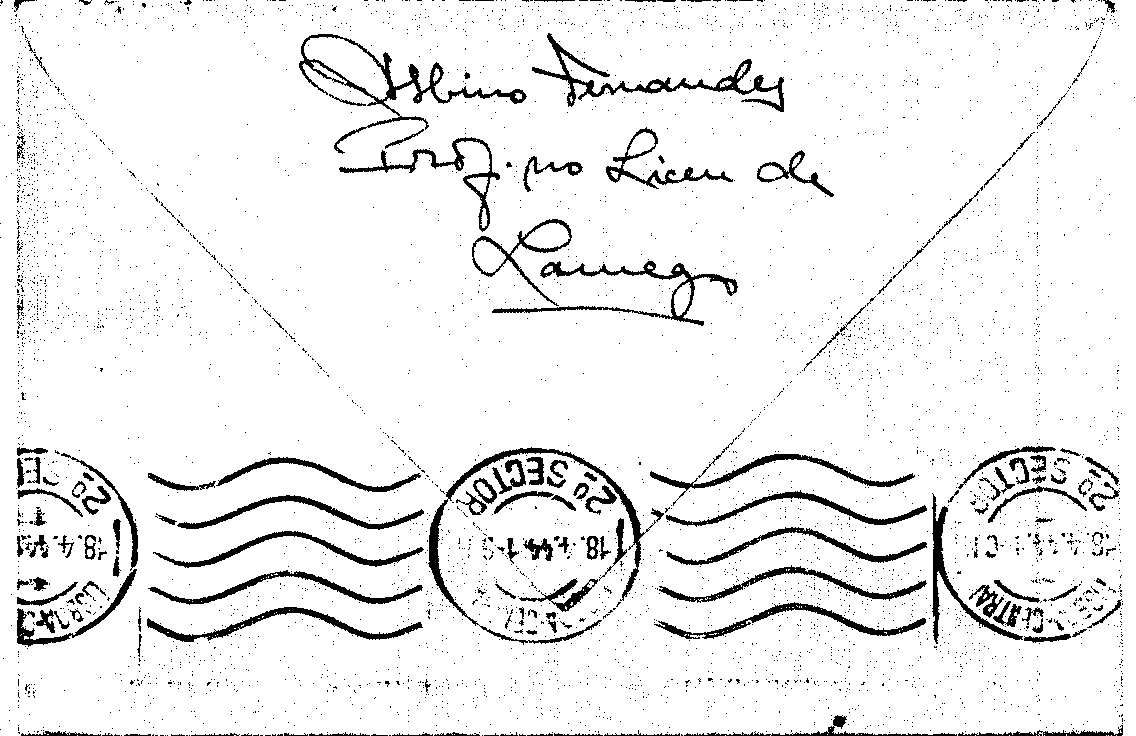 Albino Fernandes
Prof. no Liceu de
Lamego
2º SE
18.4.44
LISBOA-C
2º SECTOR
18.4.44-1
A-CEN
2º SECTOR
18.4.44-1
CENTRAL